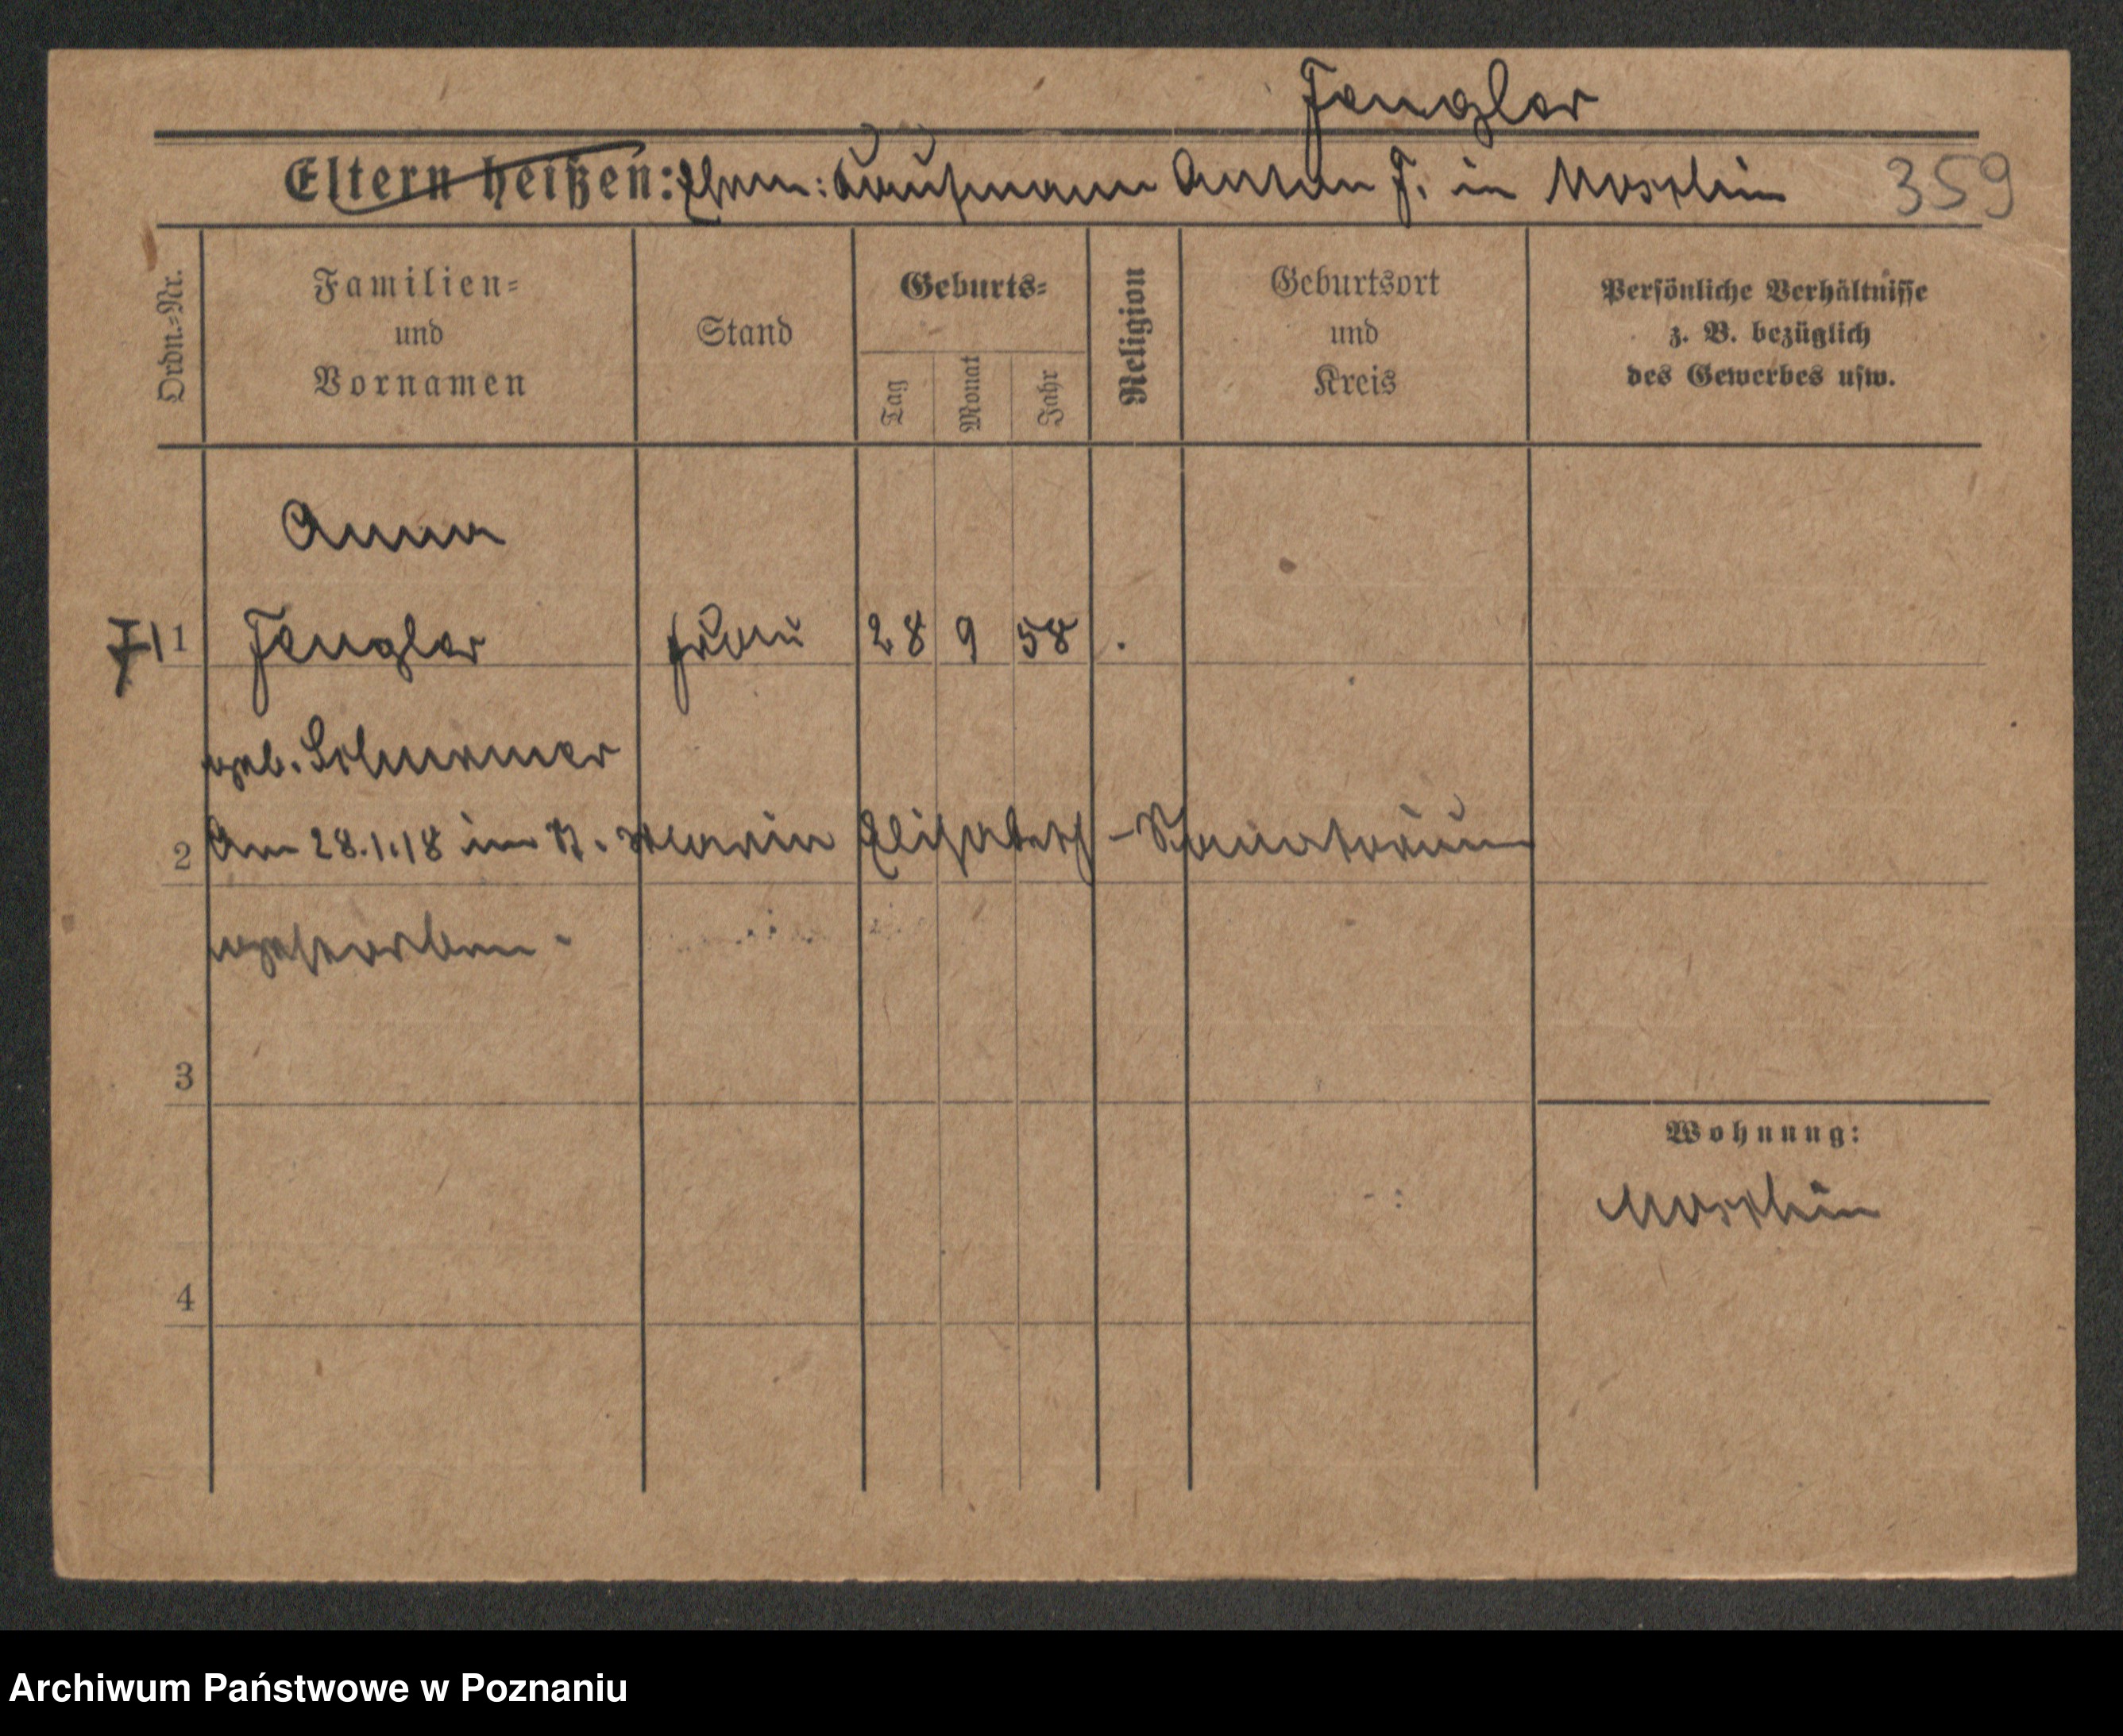 Fengler
Eltern heißen: Ehem: Kaufmann Anton F. in Moschin 359
Ordn.-Nr. Familien- und Vornamen Stand Geburts- Tag Monat Jahr Religion Geburtsort und Kreis Persönliche Verhältnisse z. B. bezüglich des Gewerbes usw.
Anna
1 Fengler Frau 28 9 58
geb.
2 Am 28.1.18 im St. Marien Elisabeth-Sanatorium
gestorben.
3
Wohnung:
Moschin
4
Archiwum Państwowe w Poznaniu